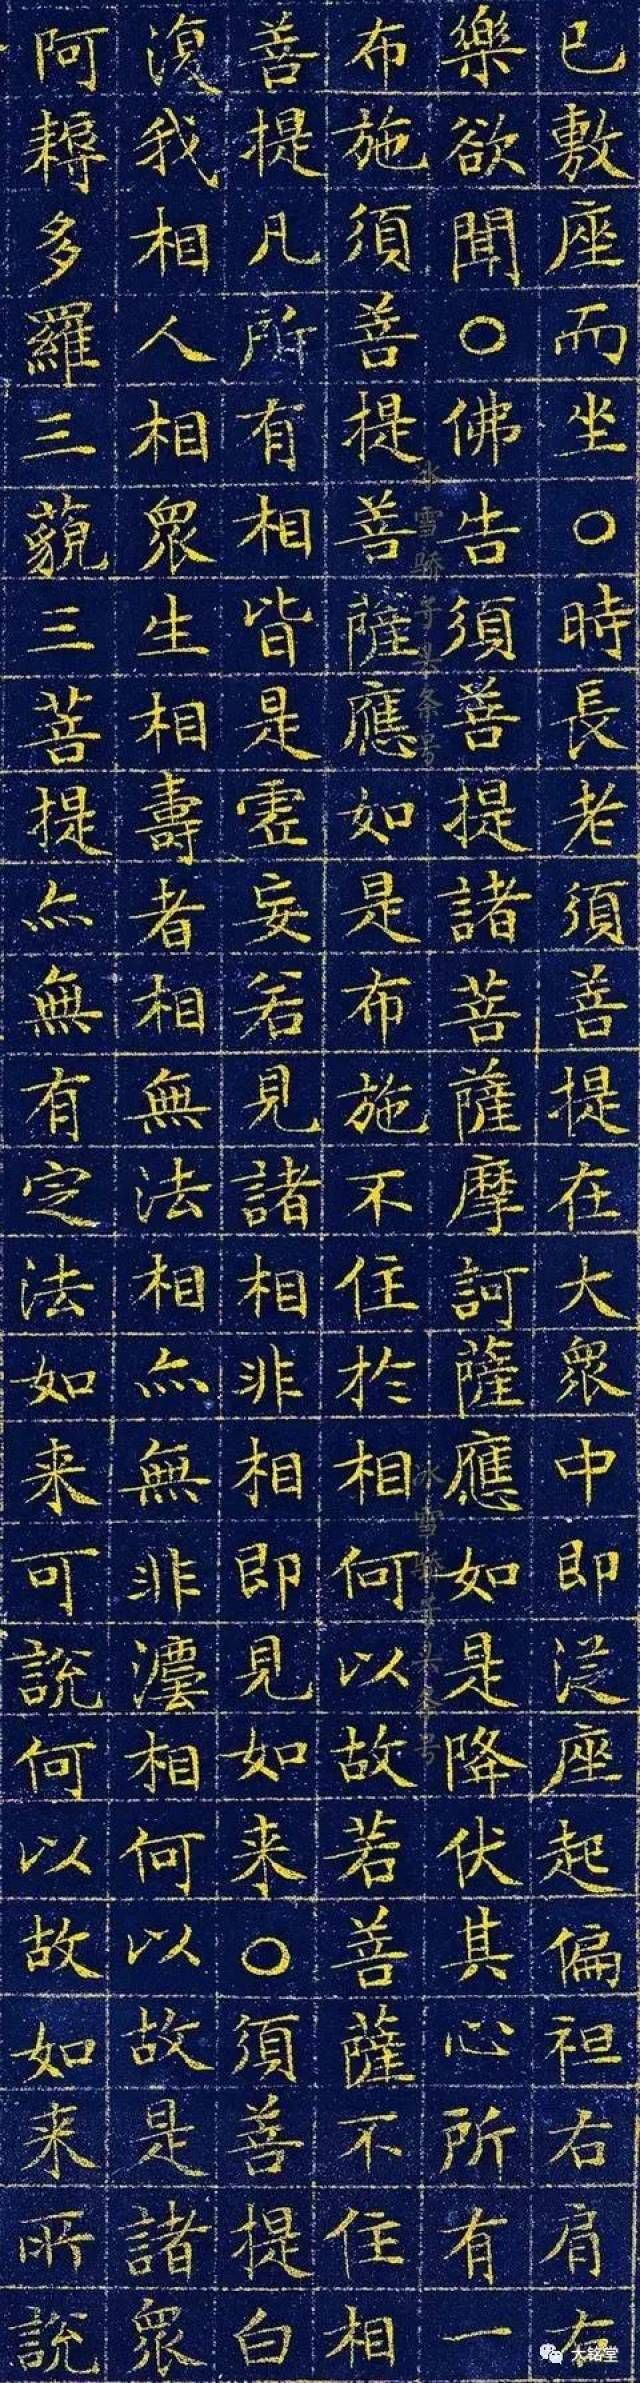 已敷座而坐〇時長老須善提在大眾中即從座起偏袒右肩右
樂欲聞〇佛告須善提諸菩薩摩訶薩應如是降伏其心所有一
布施須善提善薩應如是布施不住於相何以故若善薩不住相
善提凡所有相皆是虛妄若見諸相非相即見如来〇須善提白
復我相人相眾生相壽者相無法相亦無非灋相何以故是諸眾
阿耨多羅三藐三菩提亦無有定法如来可說何以故如来所說
冰雪骄子头条号
冰雪骄子头条号
大铭堂